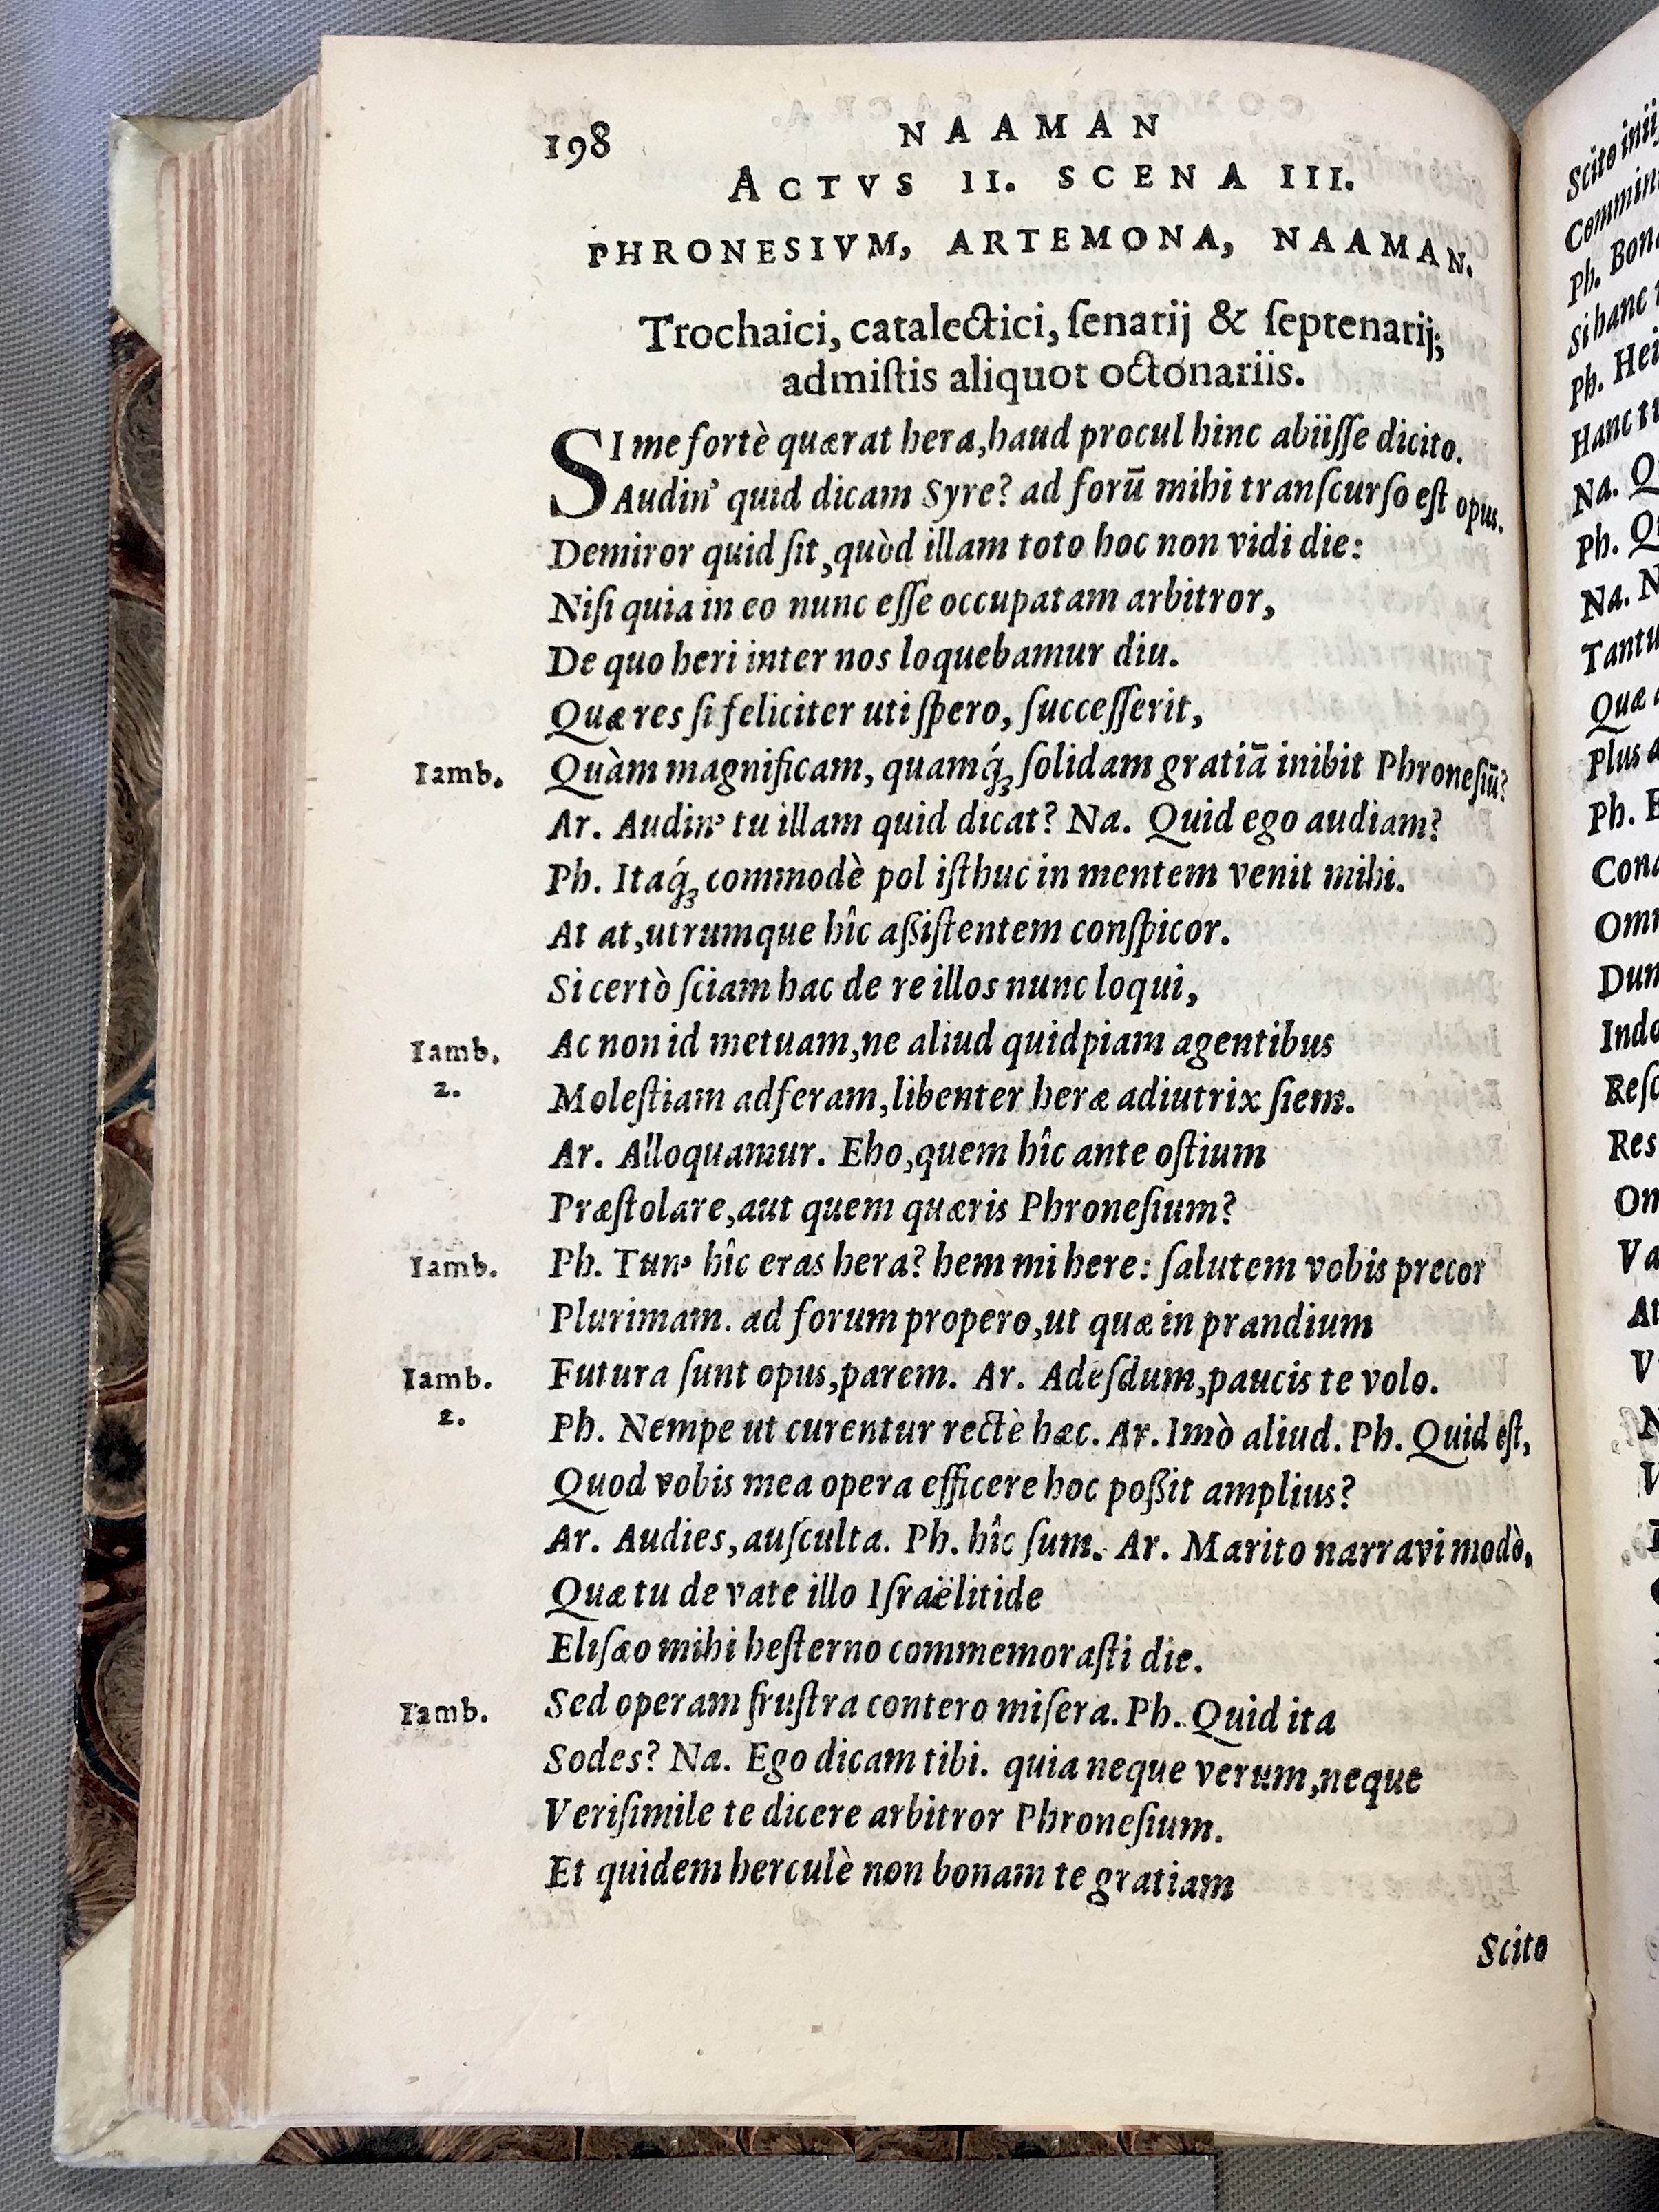 198 NAAMAN
ACTVS II. SCENA III.
PHRONESIVM, ARTEMONA, NAAMAN.
Trochaici, catalectici, ſenarij & ſeptenarij;
admiſtis aliquot octonariis.
SI me fortè quærat hera,haud procul hinc abiiſſe dicito.
Audin' quid dicam Syre? ad forū mihi tranſcurſo eſt opus.
Demiror quid ſit,quòd illam toto hoc non vidi die:
Niſi quia in eo nunc eſſe occupatam arbitror,
De quo heri inter nos loquebamur diu.
Quæ res ſi feliciter uti ſpero, ſucceſſerit,
Iamb. Quàm magnificam, quamq́ꝫ ſolidam gratiā inibit Phroneſiū?
Ar. Audin' tu illam quid dicat? Na. Quid ego audiam?
Ph. Itaq́ꝫ commodè pol iſthuc in mentem venit mihi.
At at,utrumque hîc aßiſtentem conſpicor.
Si certò ſciam hac de re illos nunc loqui,
Iamb. Ac non id metuam,ne aliud quidpiam agentibus
2. Moleſtiam adferam,libenter heræ adiutrix ſiem.
Ar. Alloquamur. Eho,quem hîc ante oſtium
Præſtolare,aut quem quæris Phroneſium?
Iamb. Ph. Tun' hîc eras hera? hem mi here: ſalutem vobis precor
Plurimam. ad forum propero,ut quæ in prandium
Iamb. Futura ſunt opus,parem. Ar. Adeſdum,paucis te volo.
2. Ph. Nempe ut curentur rectè hæc. Ar. Imò aliud. Ph. Quid eſt,
Quod vobis mea opera efficere hoc poßit amplius?
Ar. Audies,auſculta. Ph. hîc ſum. Ar. Marito narravi modò,
Quæ tu de vate illo Iſraëlitide
Eliſæo mihi heſterno commemoraſti die.
Iamb. Sed operam fruſtra contero miſera. Ph. Quid ita
Sodes? Na. Ego dicam tibi. quia neque verum,neque
Veriſimile te dicere arbitror Phroneſium.
Et quidem herculè non bonam te gratiam
Scito